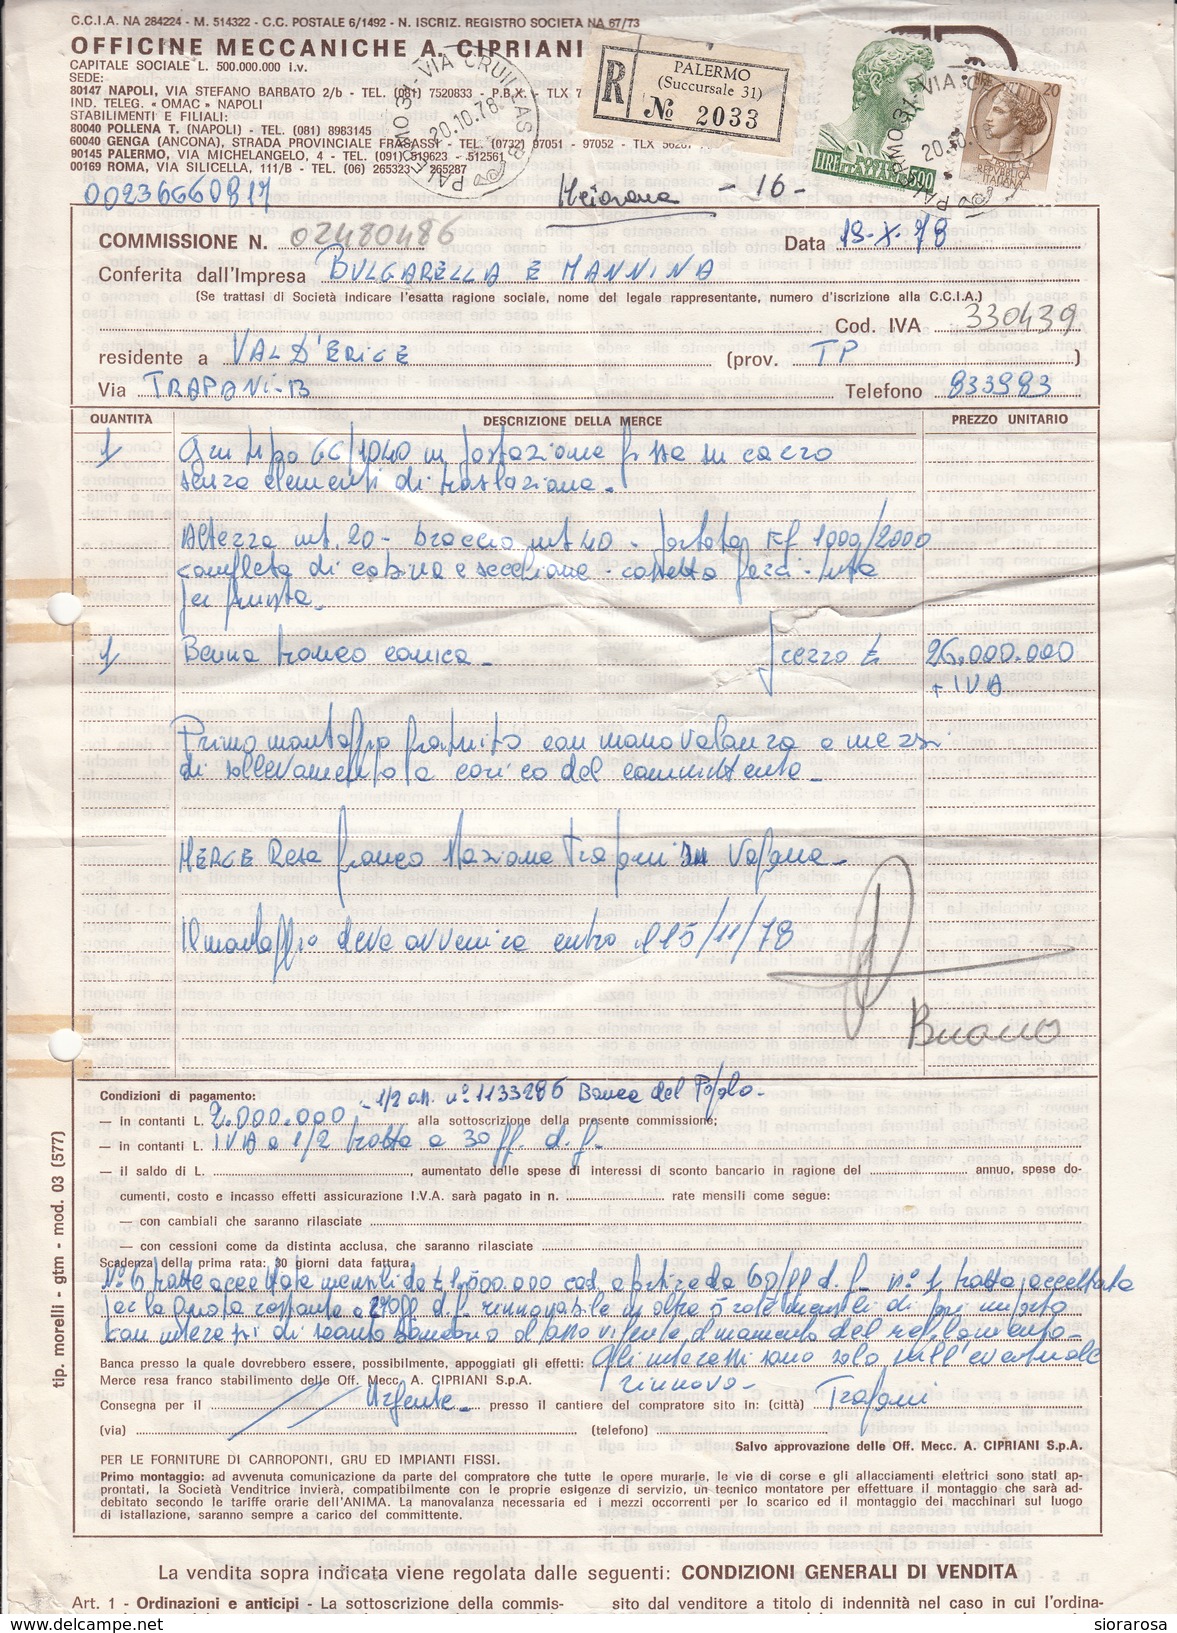 C.C.I.A. NA 284224 - M. 514322 - C.C. POSTALE 6/1492 - N. ISCRIZ. REGISTRO SOCIETÀ NA 67/73
OFFICINE MECCANICHE A. CIPRIANI
CAPITALE SOCIALE L. 500.000.000 i.v.
SEDE:
80147 NAPOLI, VIA STEFANO BARBATO 2/b - TEL. (081) 7520833 - P.B.X. - TLX 7
IND. TELEG. « OMAC » NAPOLI
STABILIMENTI E FILIALI:
80040 POLLENA T. (NAPOLI) - TEL. (081) 8983145
60040 GENGA (ANCONA), STRADA PROVINCIALE FRASASSI - TEL. (0732) 97051 - 97052 - TLX
90145 PALERMO, VIA MICHELANGELO, 4 - TEL. (091) 519623 - 512561
00169 ROMA, VIA SILICELLA, 111/B - TEL. (06) 265323 - 265287
R
PALERMO
(Succursale 31)
№ 2033
20.10.78
POSTE ITALIANE
LIRE 500
LIRE 20
POSTE
REPVBBLICA
ITALIANA
00236660817
- 16 -
COMMISSIONE N. 02480486
Data 19-X-78
Conferita dall'Impresa BULGARELLA E MANNINA
(Se trattasi di Società indicare l'esatta ragione sociale, nome del legale rappresentante, numero d'iscrizione alla C.C.I.A.)
Cod. IVA 330439
residente a VAL D'ERICE (prov. TP)
Via TRAPANI-B Telefono 833983
QUANTITÀ DESCRIZIONE DELLA MERCE PREZZO UNITARIO
1 Gru tipo GC/1040 in postazione fissa su cavro
senza elementi di traslazione.
Altezza mt. 20 - braccio mt 40 - portata Kg 1000/2000
completa di cabina e
1 Benna tronco conica - prezzo £ 26.000.000
+ IVA
Primo montaggio gratuito con manovalanza e mezzi
di sollevamento a carico del committente -
MERCE Resa franco stazione Trapani su vagone -
Il montaggio deve avvenire entro il 15/11/78
Buono
Condizioni di pagamento: - 1/2 ass. n° 1133286 Banca del Popolo -
— in contanti L. 2.000.000, alla sottoscrizione della presente commissione;
— in contanti L. IVA a 1/2 tratta a 30 gg. d. f.
— il saldo di L. , aumentato delle spese di interessi di sconto bancario in ragione del annuo, spese do-
cumenti, costo e incasso effetti assicurazione I.V.A. sarà pagato in n. rate mensili come segue:
— con cambiali che saranno rilasciate
— con cessioni come da distinta acclusa, che saranno rilasciate
Scadenza della prima rata: 30 giorni data fattura
N° 6 tratte accettate mensili da £ 1.500.000 cad. a partire da 60/gg d. f. - n° 1 tratta accettata
per la quota restante a 270 gg d. f. rinnovabile in altre 5 rate mensili di pari importo
con interessi di sconto bancario al tasso vigente al momento del regolamento -
Banca presso la quale dovrebbero essere, possibilmente, appoggiati gli effetti: Gli interessi sono solo sull'eventuale
Merce resa franco stabilimento delle Off. Mecc. A. CIPRIANI S.p.A. rinnovo -
Consegna per il Urgente - presso il cantiere del compratore sito in: (città) Trapani
(via) (telefono)
Salvo approvazione delle Off. Mecc. A. CIPRIANI S.p.A.
PER LE FORNITURE DI CARROPONTI, GRU ED IMPIANTI FISSI.
Primo montaggio: ad avvenuta comunicazione da parte del compratore che tutte le opere murarie, le vie di corse e gli allacciamenti elettrici sono stati ap-
prontati, la Società Venditrice invierà, compatibilmente con le proprie esigenze di servizio, un tecnico montatore per effettuare il montaggio che sarà ad-
debitato secondo le tariffe orarie dell'ANIMA. La manovalanza necessaria ed i mezzi occorrenti per lo scarico ed il montaggio dei macchinari sul luogo
di istallazione, saranno sempre a carico del committente.
tip. morelli - gtm - mod. 03 (577)
La vendita sopra indicata viene regolata dalle seguenti: CONDIZIONI GENERALI DI VENDITA
Art. 1 - Ordinazioni e anticipi - La sottoscrizione della commis-
sito dal venditore a titolo di indennità nel caso in cui l'ordina-
siorarosa